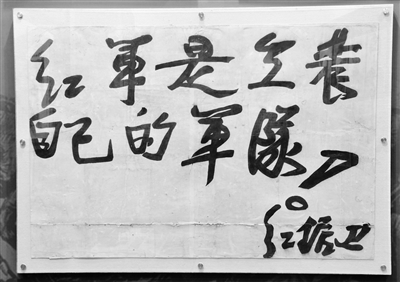 红軍是工農
自己的軍隊！
红